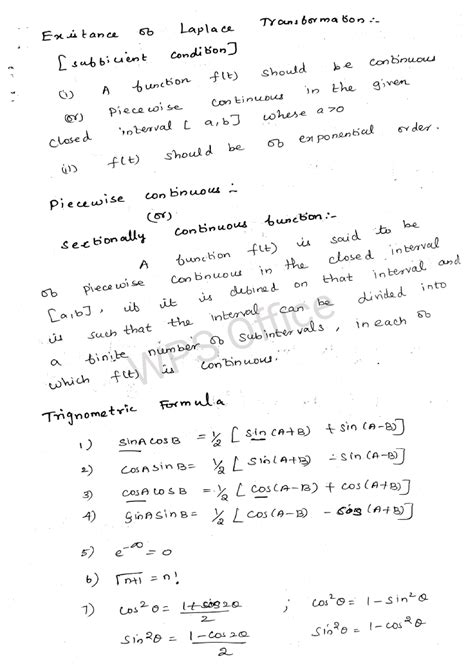 Existance of Laplace Transformation:-
[sufficient condition]
(i) A function f(t) should be continuous
(or) piecewise continuous in the given
closed interval [a,b] where a>0
(ii) f(t) should be of exponential order.
Piecewise continuous :-
(or)
Sectionally continuous function:-
A function f(t) is said to be
of piecewise continuous in the closed interval
[a,b], if it is defined on that interval and
is such that the interval can be divided into
a finite number of subintervals, in each of
which f(t) is continuous.
WPS Office
Trignometric Formula
1) sinAcosB = ½ [sin(A+B) + sin(A-B)]
2) cosAsinB = ½ [sin(A+B) - sin(A-B)]
3) cosAcosB = ½ [cos(A-B) + cos(A+B)]
4) sinAsinB = ½ [cos(A-B) - cos(A+B)]
5) e^-∞ = 0
6) √n+1 = n!
7) cos²θ = 1+cos2θ/2 ; cos²θ = 1-sin²θ
sin²θ = 1-cos2θ/2 sin²θ = 1-cos²θ